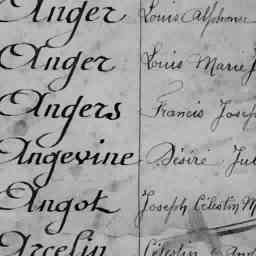 Anger Louis Alphonse
Anger Louis Marie J
Angers Francis Josep
Angevine Désiré Jul
Angot Joseph Célestin M
Arcelin Célestin